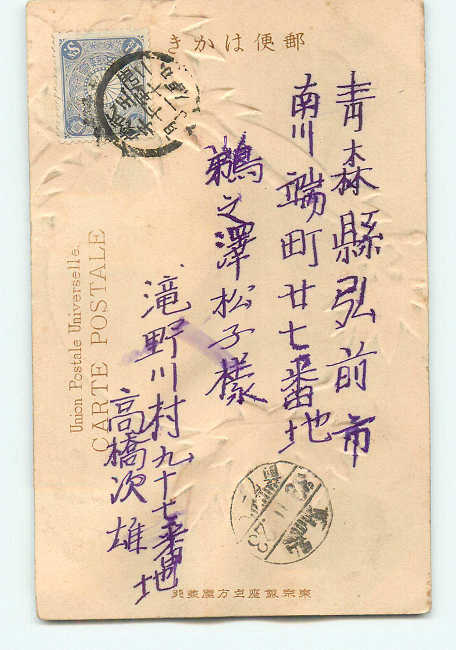 郵便はかき
青森縣弘前市
南川端町廿七番地
鵜之澤松子樣
滝野川村九十七番地
高橋次雄
Union Postale Universelle.
CARTE POSTALE